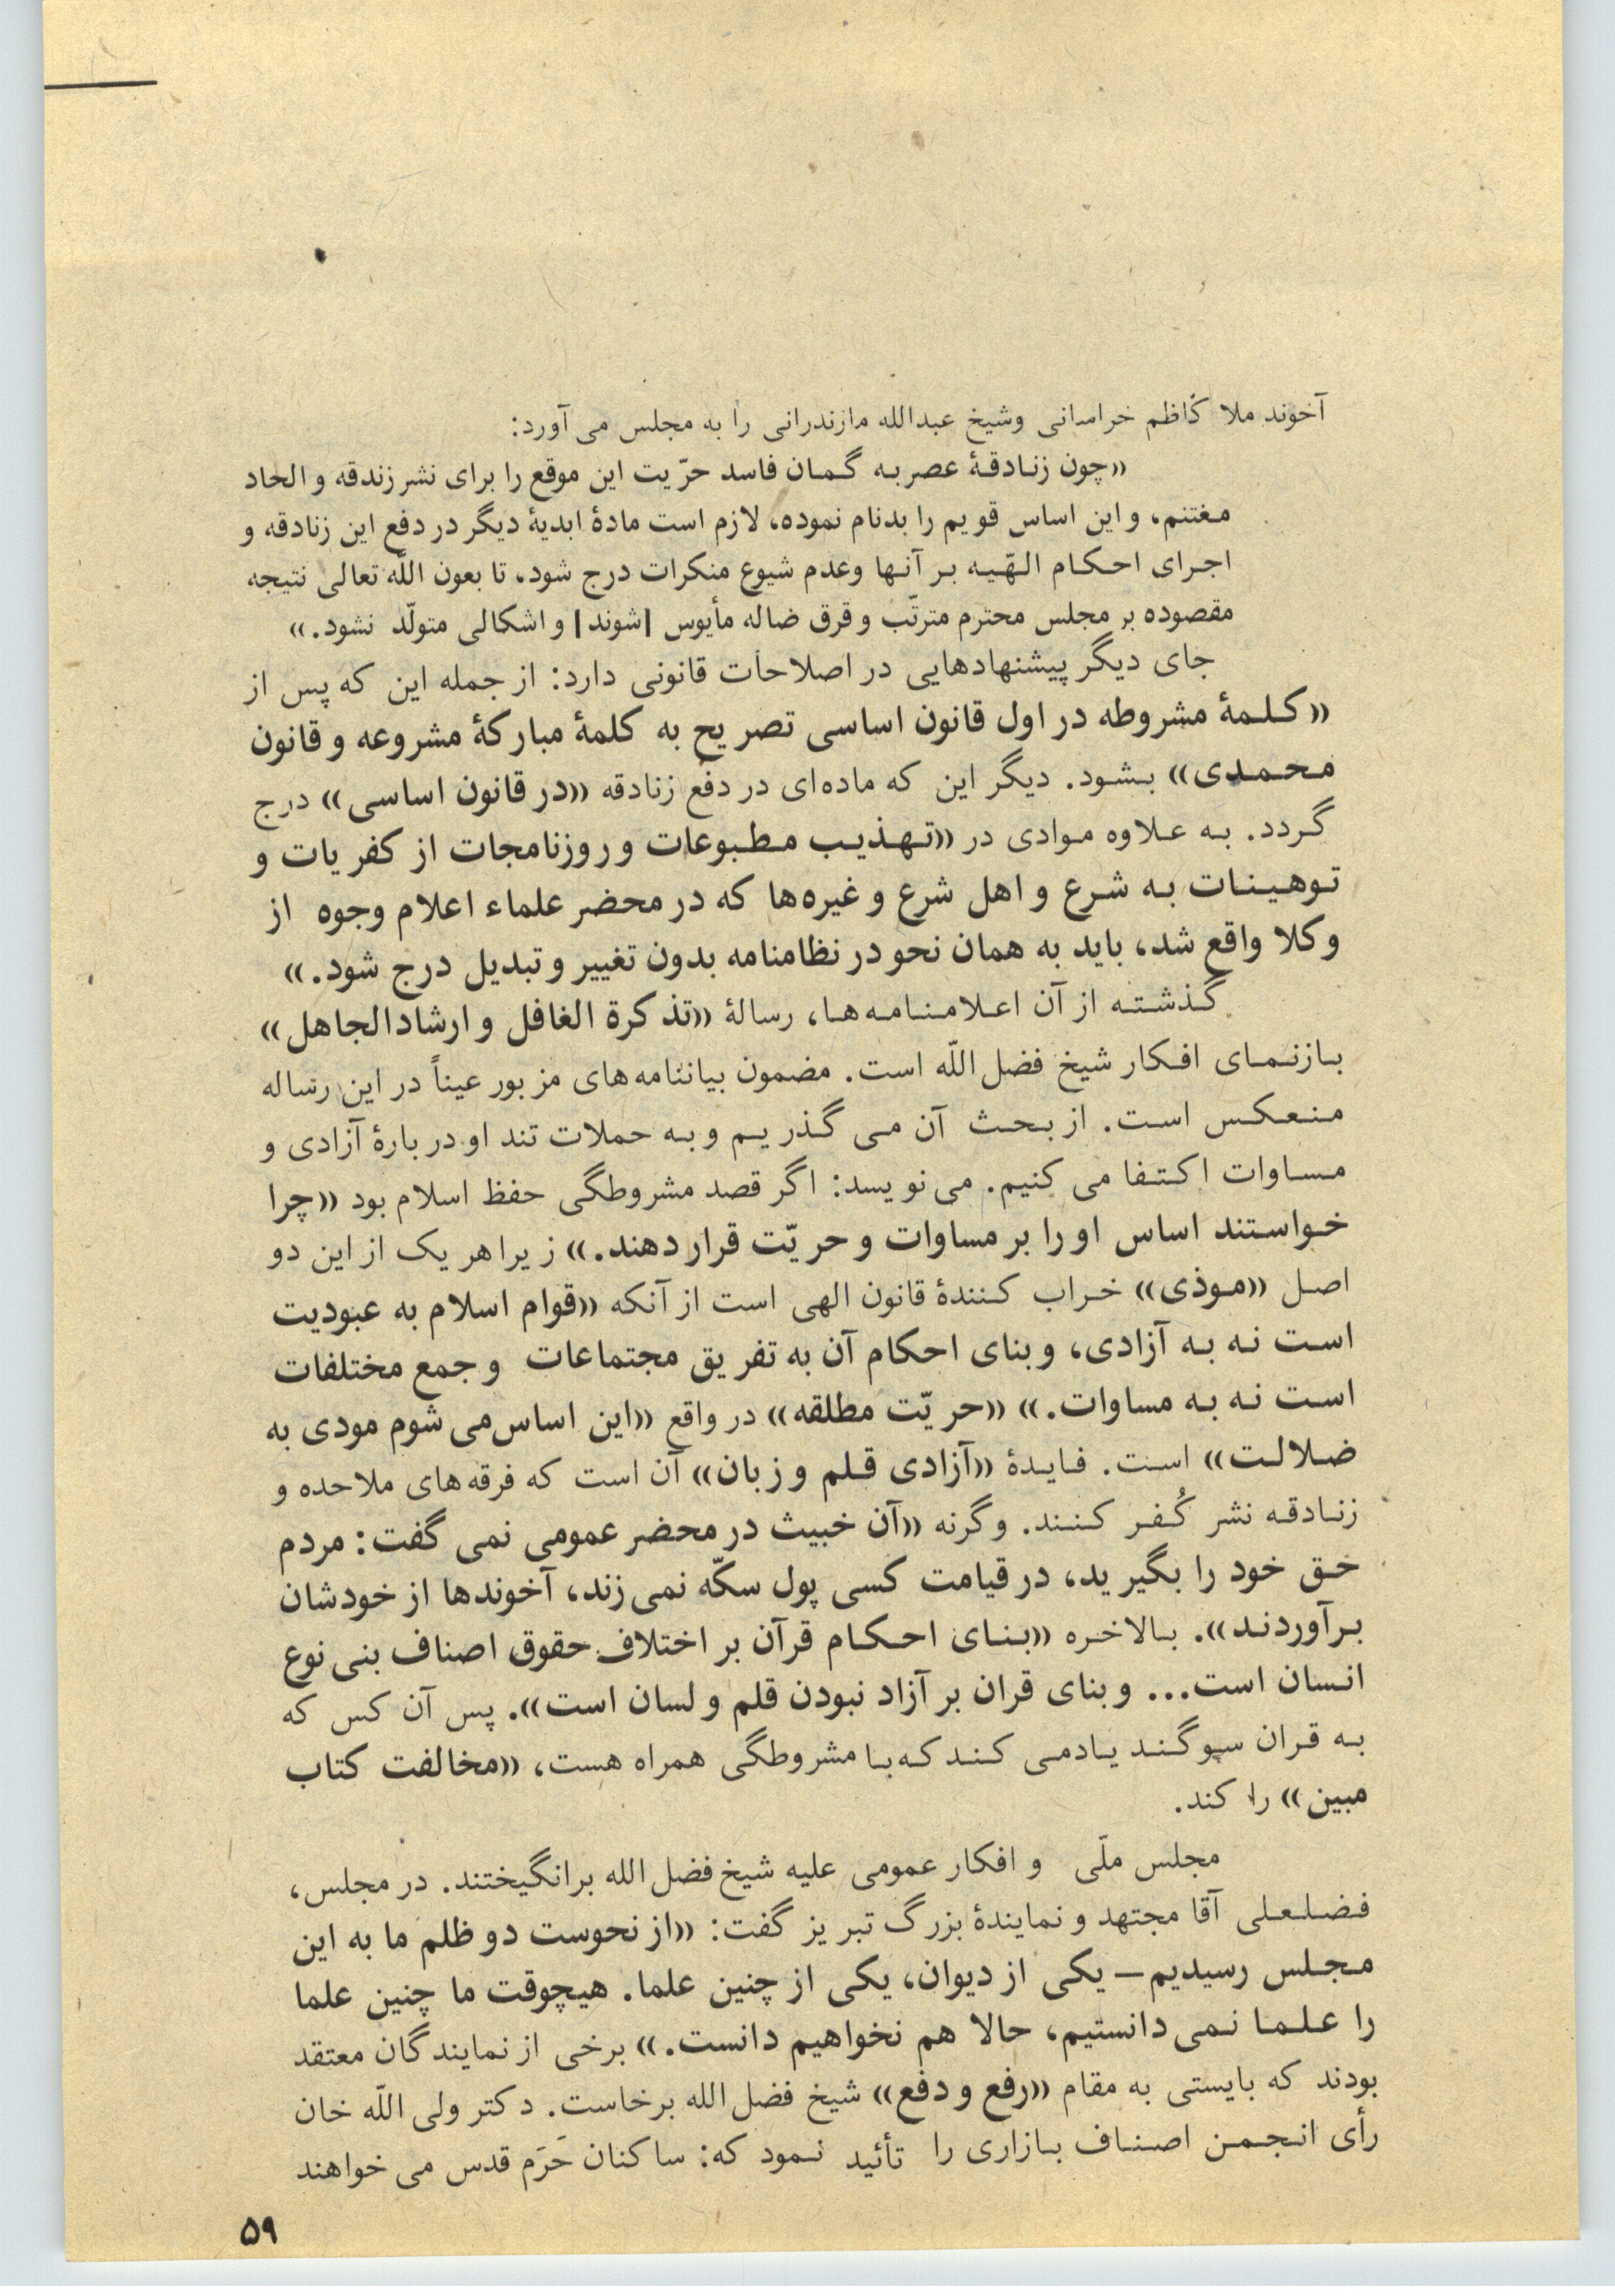 آخوند ملا کاظم خراسانی وشیخ عبدالله مازندرانی را به مجلس می آورد:
«چون زنادقهٔ عصر به گمان فاسد حرّیت این موقع را برای نشر زندقه و الحاد
مغتنم، و این اساس قویم را بدنام نموده، لازم است مادهٔ ابدیهٔ دیگر در دفع این زنادقه و
اجرای احکام الهّیه بر آنها وعدم شیوع منکرات درج شود، تا بعون اللّه تعالی نتیجه
مقصوده بر مجلس محترم مترتّب و قرق ضاله مأیوس [شوند] و اشکالی متولّد نشود.»
جای دیگر پیشنهادهایی در اصلاحات قانونی دارد: از جمله این که پس از
«کلمهٔ مشروطه در اول قانون اساسی تصریح به کلمهٔ مبارکهٔ مشروعه و قانون
محمدی» بشود. دیگر این که ماده‌ای در دفع زنادقه «در قانون اساسی» درج
گردد. به علاوه موادی در «تهذیب مطبوعات و روزنامجات از کفریات و
توهینات به شرع و اهل شرع و غیره‌ها که در محضر علماء اعلام وجوه از
وکلا واقع شد، باید به همان نحو در نظامنامه بدون تغییر و تبدیل درج شود.»
گذشته از آن اعلامنامه‌ها، رسالهٔ «تذکرة الغافل و ارشادالجاهل»
بازنمای افکار شیخ فضل اللّه است. مضمون بیاننامه‌های مزبور عیناً در این رساله
منعکس است. از بحث آن می گذریم و به حملات تند او در بارهٔ آزادی و
مساوات اکتفا می کنیم. می نویسد: اگر قصد مشروطگی حفظ اسلام بود «چرا
خواستند اساس او را بر مساوات و حریّت قرار دهند.» زیرا هر یک از این دو
اصل «موذی» خراب کنندهٔ قانون الهی است از آنکه «قوام اسلام به عبودیت
است نه به آزادی، و بنای احکام آن به تفریق مجتماعات و جمع مختلفات
است نه به مساوات.» «حریّت مطلقه» در واقع «این اساس می شوم مودی به
ضلالت» است. فایدهٔ «آزادی قلم و زبان» آن است که فرقه‌های ملاحده و
زنادقه نشر کُفر کنند. وگرنه «آن خبیث در محضر عمومی نمی گفت: مردم
حق خود را بگیرید، در قیامت کسی پول سکّه نمی زند، آخوندها از خودشان
برآوردند». بالاخره «بنای احکام قرآن بر اختلاف حقوق اصناف بنی نوع
انسان است... و بنای قران بر آزاد نبودن قلم و لسان است». پس آن کس که
به قران سوگند یادمی کند که با مشروطگی همراه هست، «مخالفت کتاب
مبین» را کند.
مجلس ملّی و افکار عمومی علیه شیخ فضل الله برانگیختند. در مجلس،
فضلعلی آقا مجتهد و نمایندهٔ بزرگ تبریز گفت: «از نحوست دو ظلم ما به این
مجلس رسیدیم— یکی از دیوان، یکی از چنین علما. هیچوقت ما چنین علما
را علما نمی دانستیم، حالا هم نخواهیم دانست.» برخی از نمایندگان معتقد
بودند که بایستی به مقام «رفع و دفع» شیخ فضل الله برخاست. دکتر ولی اللّه خان
رأی انجمن اصناف بازاری را تأئید نمود که: ساکنان حَرَم قدس می خواهند
۵۹